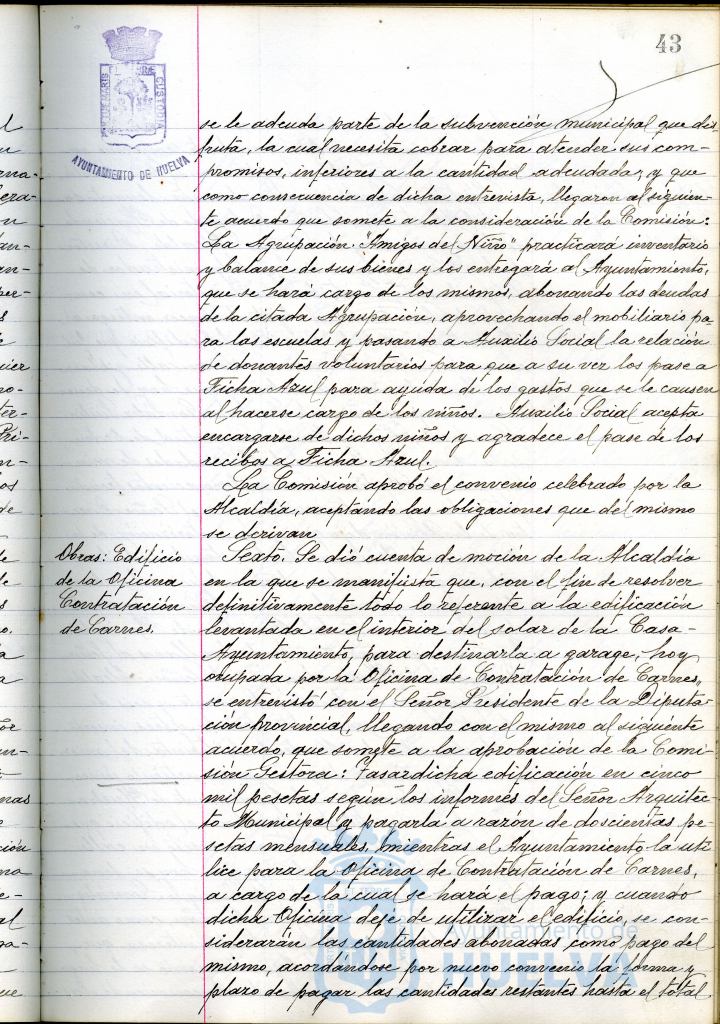 43
AYUNTAMIENTO DE HUELVA
se le adeuda parte de la subvención municipal que dis
fruta, la cual necesita cobrar para atender sus com-
promisos, inferiores a la cantidad adeudada, y que
como consecuencia de dicha entrevista, llegaron al siguien-
te acuerdo que somete a la consideración de la Comisión:
La Agrupación "Amigos del Niño" practicará inventario
y balance de sus bienes y los entregará al Ayuntamiento,
que se hará cargo de los mismos, abonando las deudas
de la citada Agrupación, aprovechando el mobiliario pa-
ra las escuelas y pasando a Auxilio Social la relación
de donantes voluntarios para que a su vez los pase a
Ficha Azul para ayuda de los gastos que se le causen
al hacerse cargo de los niños. Auxilio Social acepta
encargarse de dichos niños y agradece el pase de los
recibos a Ficha Azul.
La Comisión aprobó el convenio celebrado por la
Alcaldía, aceptando las obligaciones que del mismo
se derivan
Obras: Edificio
de la Oficina
Contratación
de Carnes.
Sexto. Se dió cuenta de moción de la Alcaldía
en la que se manifiesta que, con el fin de resolver
definitivamente todo lo referente a la edificación
levantada en el interior del solar de la Casa-
Ayuntamiento, para destinarla a garage, hoy
ocupada por la Oficina de Contratación de Carnes,
se entrevistó con el Señor Presidente de la Diputa-
ción provincial, llegando con el mismo al siguiente
acuerdo, que somete a la aprobación de la Comi-
sión Gestora: Tasar dicha edificación en cinco
mil pesetas según los informes del Señor Arquitec-
to Municipal y pagarla a razón de doscientas pe-
setas mensuales, mientras el Ayuntamiento la uti
lice para la Oficina de Contratación de Carnes,
a cargo de la cual se hará el pago; y cuando
dicha Oficina deje de utilizar el edificio, se con-
siderarán las cantidades abonadas como pago del
mismo, acordándose por nuevo convenio la forma y
plazo de pagar las cantidades restantes hasta el total
Ayuntamiento de
HUELVA